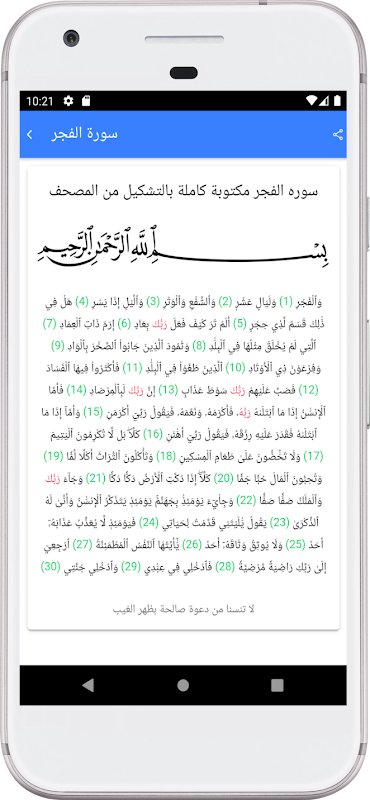 10:21
سورة الفجر
سوره الفجر مكتوبة كاملة بالتشكيل من المصحف
بِسْمِ اللَّهِ الرَّحْمَٰنِ الرَّحِيمِ
وَٱلْفَجْرِ (1) وَلَيَالٍ عَشْرٍ (2) وَٱلشَّفْعِ وَٱلْوَتْرِ (3) وَٱلَّيْلِ إِذَا يَسْرِ (4) هَلْ فِي
ذَٰلِكَ قَسَمٌ لِّذِي حِجْرٍ (5) أَلَمْ تَرَ كَيْفَ فَعَلَ رَبُّكَ بِعَادٍ (6) إِرَمَ ذَاتِ ٱلْعِمَادِ (7)
ٱلَّتِي لَمْ يُخْلَقْ مِثْلُهَا فِي ٱلْبِلَٰدِ (8) وَثَمُودَ ٱلَّذِينَ جَابُوا۟ ٱلصَّخْرَ بِٱلْوَادِ (9)
وَفِرْعَوْنَ ذِي ٱلْأَوْتَادِ (10) ٱلَّذِينَ طَغَوْا۟ فِي ٱلْبِلَٰدِ (11) فَأَكْثَرُوا۟ فِيهَا ٱلْفَسَادَ
(12) فَصَبَّ عَلَيْهِمْ رَبُّكَ سَوْطَ عَذَابٍ (13) إِنَّ رَبَّكَ لَبِٱلْمِرْصَادِ (14) فَأَمَّا
ٱلْإِنسَٰنُ إِذَا مَا ٱبْتَلَىٰهُ رَبُّهُۥ فَأَكْرَمَهُۥ وَنَعَّمَهُۥ فَيَقُولُ رَبِّي أَكْرَمَنِ (15) وَأَمَّآ إِذَا مَا
ٱبْتَلَىٰهُ فَقَدَرَ عَلَيْهِ رِزْقَهُۥ فَيَقُولُ رَبِّي أَهَٰنَنِ (16) كَلَّا ۖ بَل لَّا تُكْرِمُونَ ٱلْيَتِيمَ
(17) وَلَا تَحَٰٓضُّونَ عَلَىٰ طَعَامِ ٱلْمِسْكِينِ (18) وَتَأْكُلُونَ ٱلتُّرَاثَ أَكْلًا لَّمًّا (19)
وَتُحِبُّونَ ٱلْمَالَ حُبًّا جَمًّا (20) كَلَّآ إِذَا دُكَّتِ ٱلْأَرْضُ دَكًّا دَكًّا (21) وَجَآءَ رَبُّكَ
وَٱلْمَلَكُ صَفًّا صَفًّا (22) وَجِا۟يٓءَ يَوْمَئِذٍۭ بِجَهَنَّمَ ۚ يَوْمَئِذٍ يَتَذَكَّرُ ٱلْإِنسَٰنُ وَأَنَّىٰ لَهُ
ٱلذِّكْرَىٰ (23) يَقُولُ يَٰلَيْتَنِي قَدَّمْتُ لِحَيَاتِي (24) فَيَوْمَئِذٍ لَّا يُعَذِّبُ عَذَابَهُۥٓ
أَحَدٌ (25) وَلَا يُوثِقُ وَثَاقَهُۥٓ أَحَدٌ (26) يَٰٓأَيَّتُهَا ٱلنَّفْسُ ٱلْمُطْمَئِنَّةُ (27) ٱرْجِعِيٓ
إِلَىٰ رَبِّكِ رَاضِيَةً مَّرْضِيَّةً (28) فَٱدْخُلِي فِي عِبَٰدِي (29) وَٱدْخُلِي جَنَّتِي (30)
لا تنسنا من دعوة صالحة بظهر الغيب